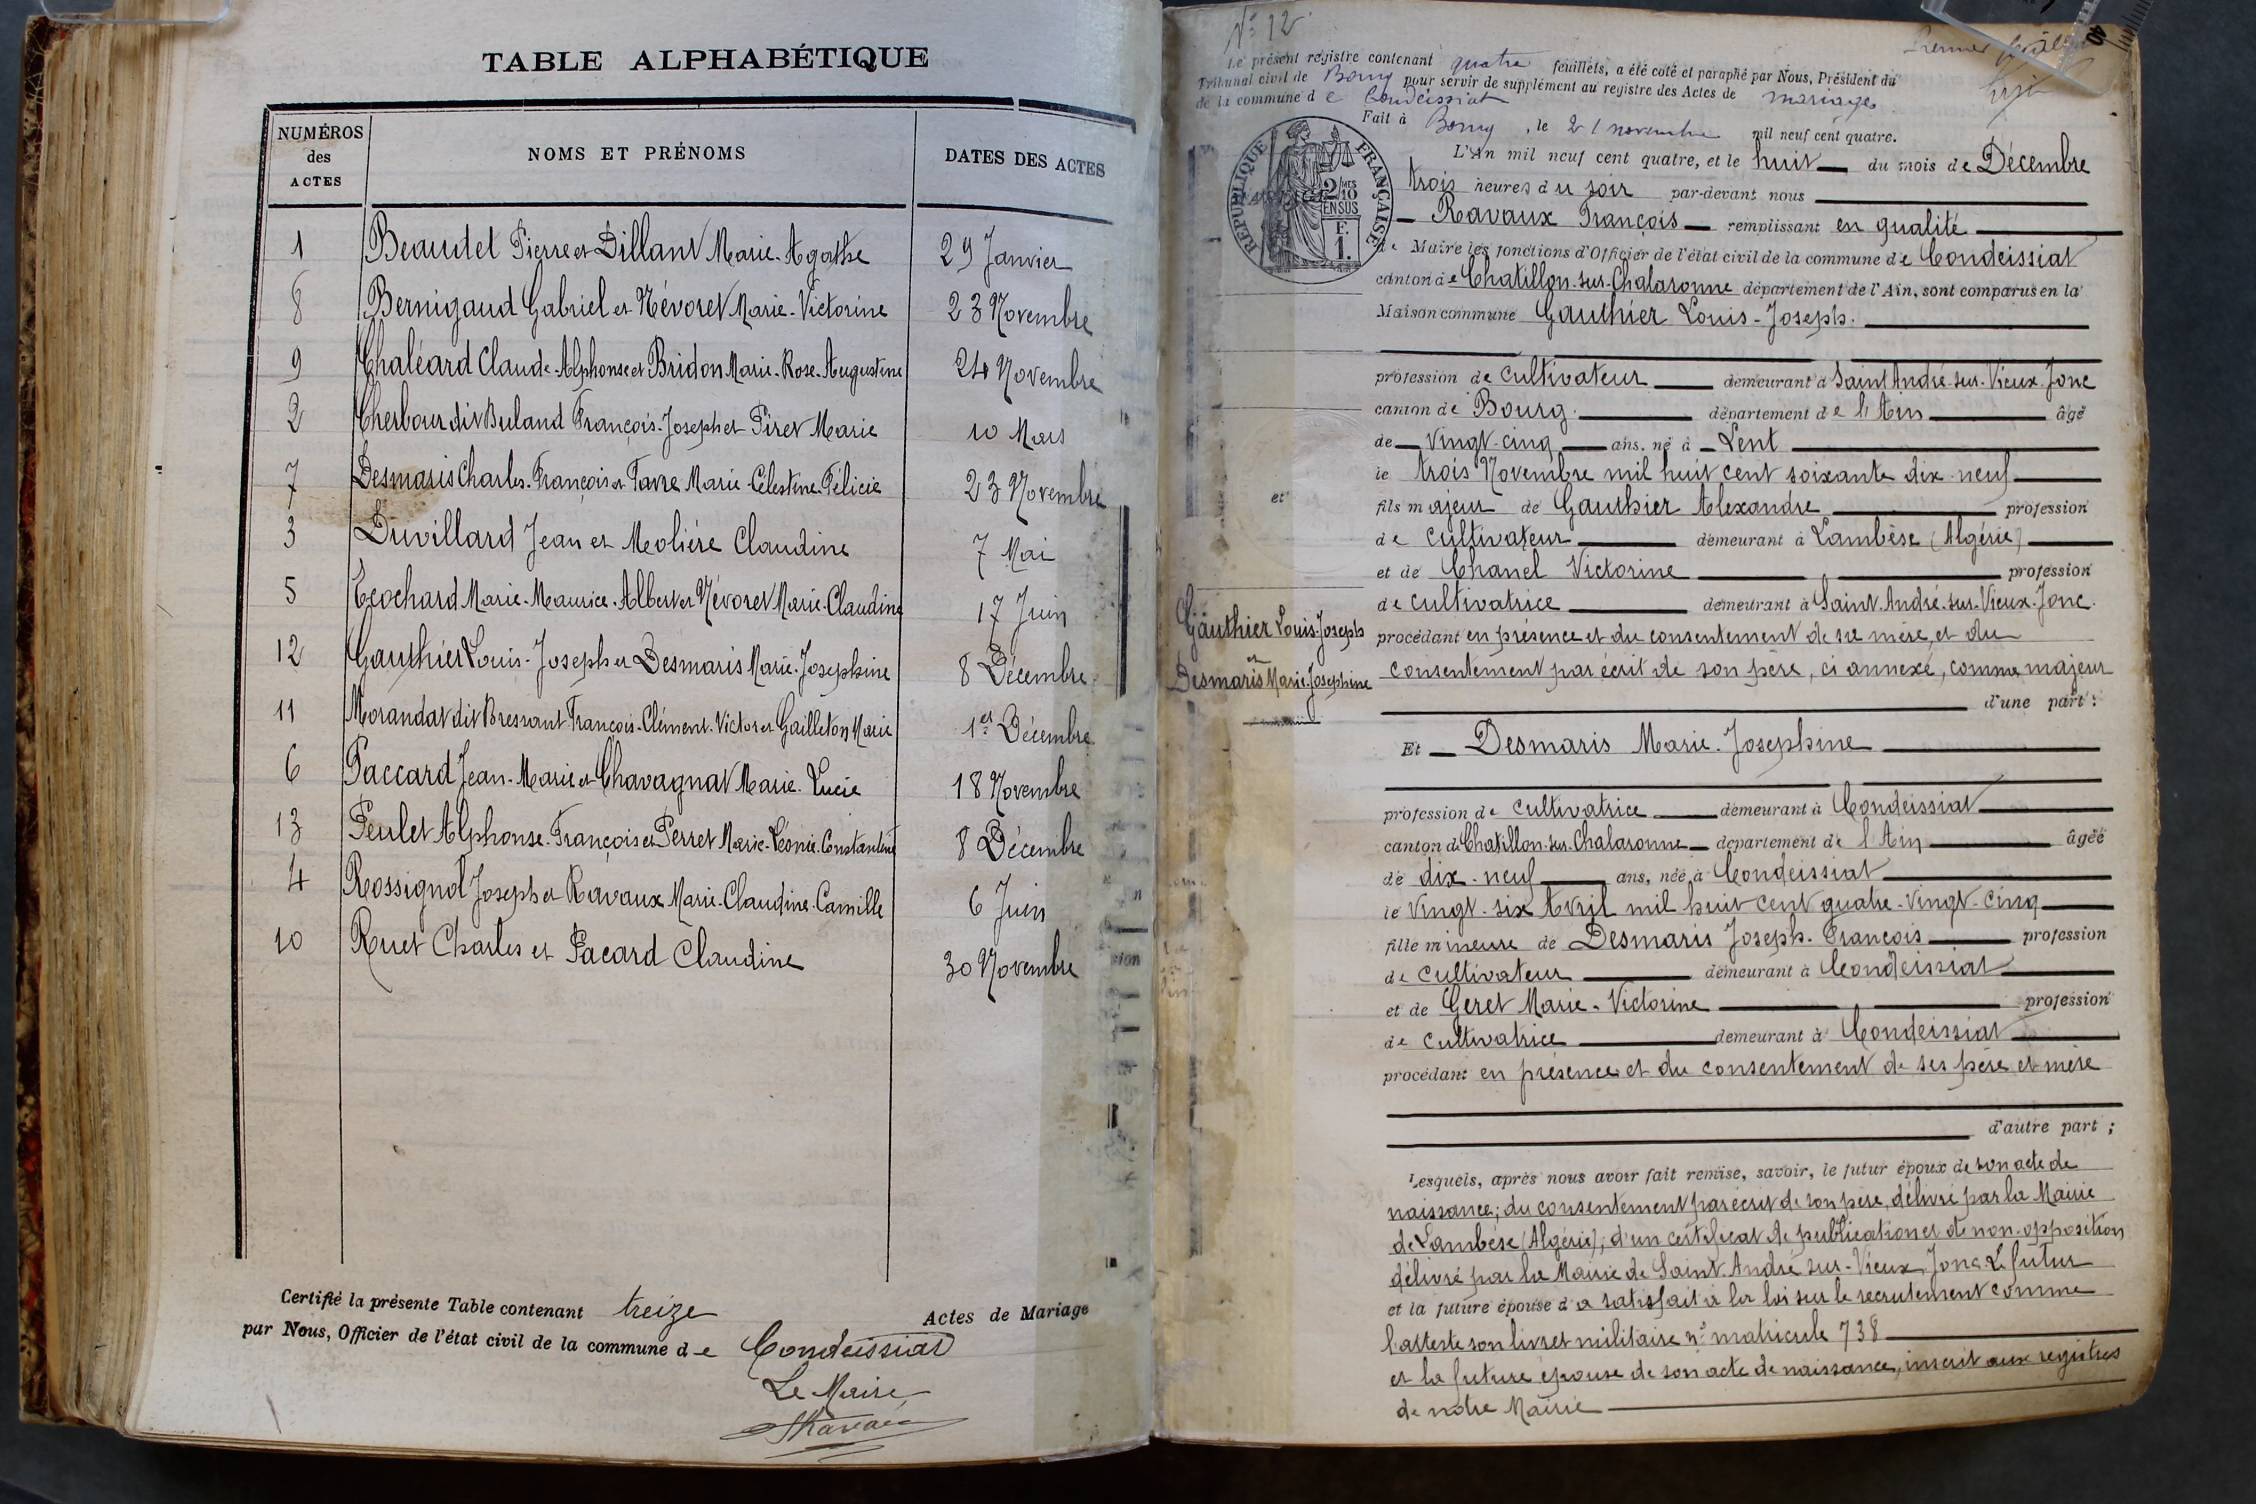 TABLE ALPHABÉTIQUE
NUMÉROS des ACTES NOMS ET PRÉNOMS DATES DES ACTES
1 Beaudet Pierre et Dillant Marie-Agathe 29 Janvier
8 Bernigaud Gabriel et Névoret Marie-Victorine 23 Novembre
9 Chaléard Claude-Alphonse et Bridon Marie-Rose-Augustine 24 Novembre
2 Cherbour dit Buland François-Joseph et Piret Marie 10 Mars
7 Desmaris Charles-François et Favre Marie-Célestine-Félicie 23 Novembre
3 Duvillard Jean et Molière Claudine 7 Mai
5 Ecochard Marie-Maurice-Albert et Névoret Marie-Claudine 17 Juin
12 Gauthier Louis-Joseph et Desmaris Marie-Josephine 8 Décembre
11 Morandat dit Bressant François-Clément-Victor et Gailleton Marie 1er Décembre
6 Paccard Jean-Marie et Chavagnat Marie-Lucie 18 Novembre
13 Peulet Alphonse-François et Perret Marie-Léonie-Constantine 8 Décembre
4 Rossignol Joseph et Ravaux Marie-Claudine-Camille 6 Juin
10 Ruet Charles et Pacard Claudine 30 Novembre
Certifié la présente Table contenant treize Actes de Mariage
par Nous, Officier de l'état civil de la commune de Condeissiat
Le Maire
N° 12
Le présent registre contenant quatre feuillets, a été coté et paraphé par Nous, Président du
Tribunal civil de Bourg pour servir de supplément au registre des Actes de mariages
de la commune de Condeissiat
Fait à Bourg, le 21 novembre mil neuf cent quatre.
RÉPUBLIQUE FRANÇAISE
2/10 MES
EN SUS
F.
1.
L'An mil neuf cent quatre, et le huit du mois de Décembre
trois heures du soir par-devant nous
Ravaux François remplissant en qualité
de Maire les fonctions d'Officier de l'état civil de la commune de Condeissiat
canton de Chatillon-sur-Chalaronne département de l'Ain, sont comparus en la
Maison commune Gauthier Louis-Joseph.
profession de cultivateur demeurant à Saint André-sur-Vieux-Jonc
canton de Bourg. département de l'Ain âgé
de vingt-cinq ans, né à Lent
le trois Novembre mil huit cent soixante dix-neuf
et
fils majeur de Gauthier Alexandre profession
de cultivateur demeurant à Lambèse (Algérie)
et de Chanel Victorine profession
de cultivatrice demeurant à Saint-André-sur-Vieux-Jonc.
Gauthier Louis-Joseph
et
Desmaris Marie-Josephine
procédant en présence et du consentement de sa mère, et du
consentement par écrit de son père, ci annexé, comme majeur
d'une part :
Et Desmaris Marie-Josephine
profession de cultivatrice demeurant à Condeissiat
canton de Chatillon-sur-Chalaronne département de l'Ain âgée
de dix-neuf ans, née à Condeissiat
le vingt-six Avril mil huit cent quatre-vingt-cinq
fille mineure de Desmaris Joseph-François profession
de cultivateur demeurant à Condeissiat
et de Geret Marie-Victorine profession
de cultivatrice demeurant à Condeissiat
procédant en présence et du consentement de ses père et mère
d'autre part ;
Lesquels, après nous avoir fait remise, savoir, le futur époux de son acte de
naissance; du consentement par écrit de son père, délivré par la Mairie
de Lambèse (Algérie); d'un certificat de publication et de non-opposition
délivré par la Mairie de Saint-André-sur-Vieux-Jonc. Le futur
et la future épouse d a satisfait à la loi sur le recrutement comme
l'atteste son livret militaire n° matricule 738
et la future épouse de son acte de naissance, inscrit aux registres
de notre Mairie